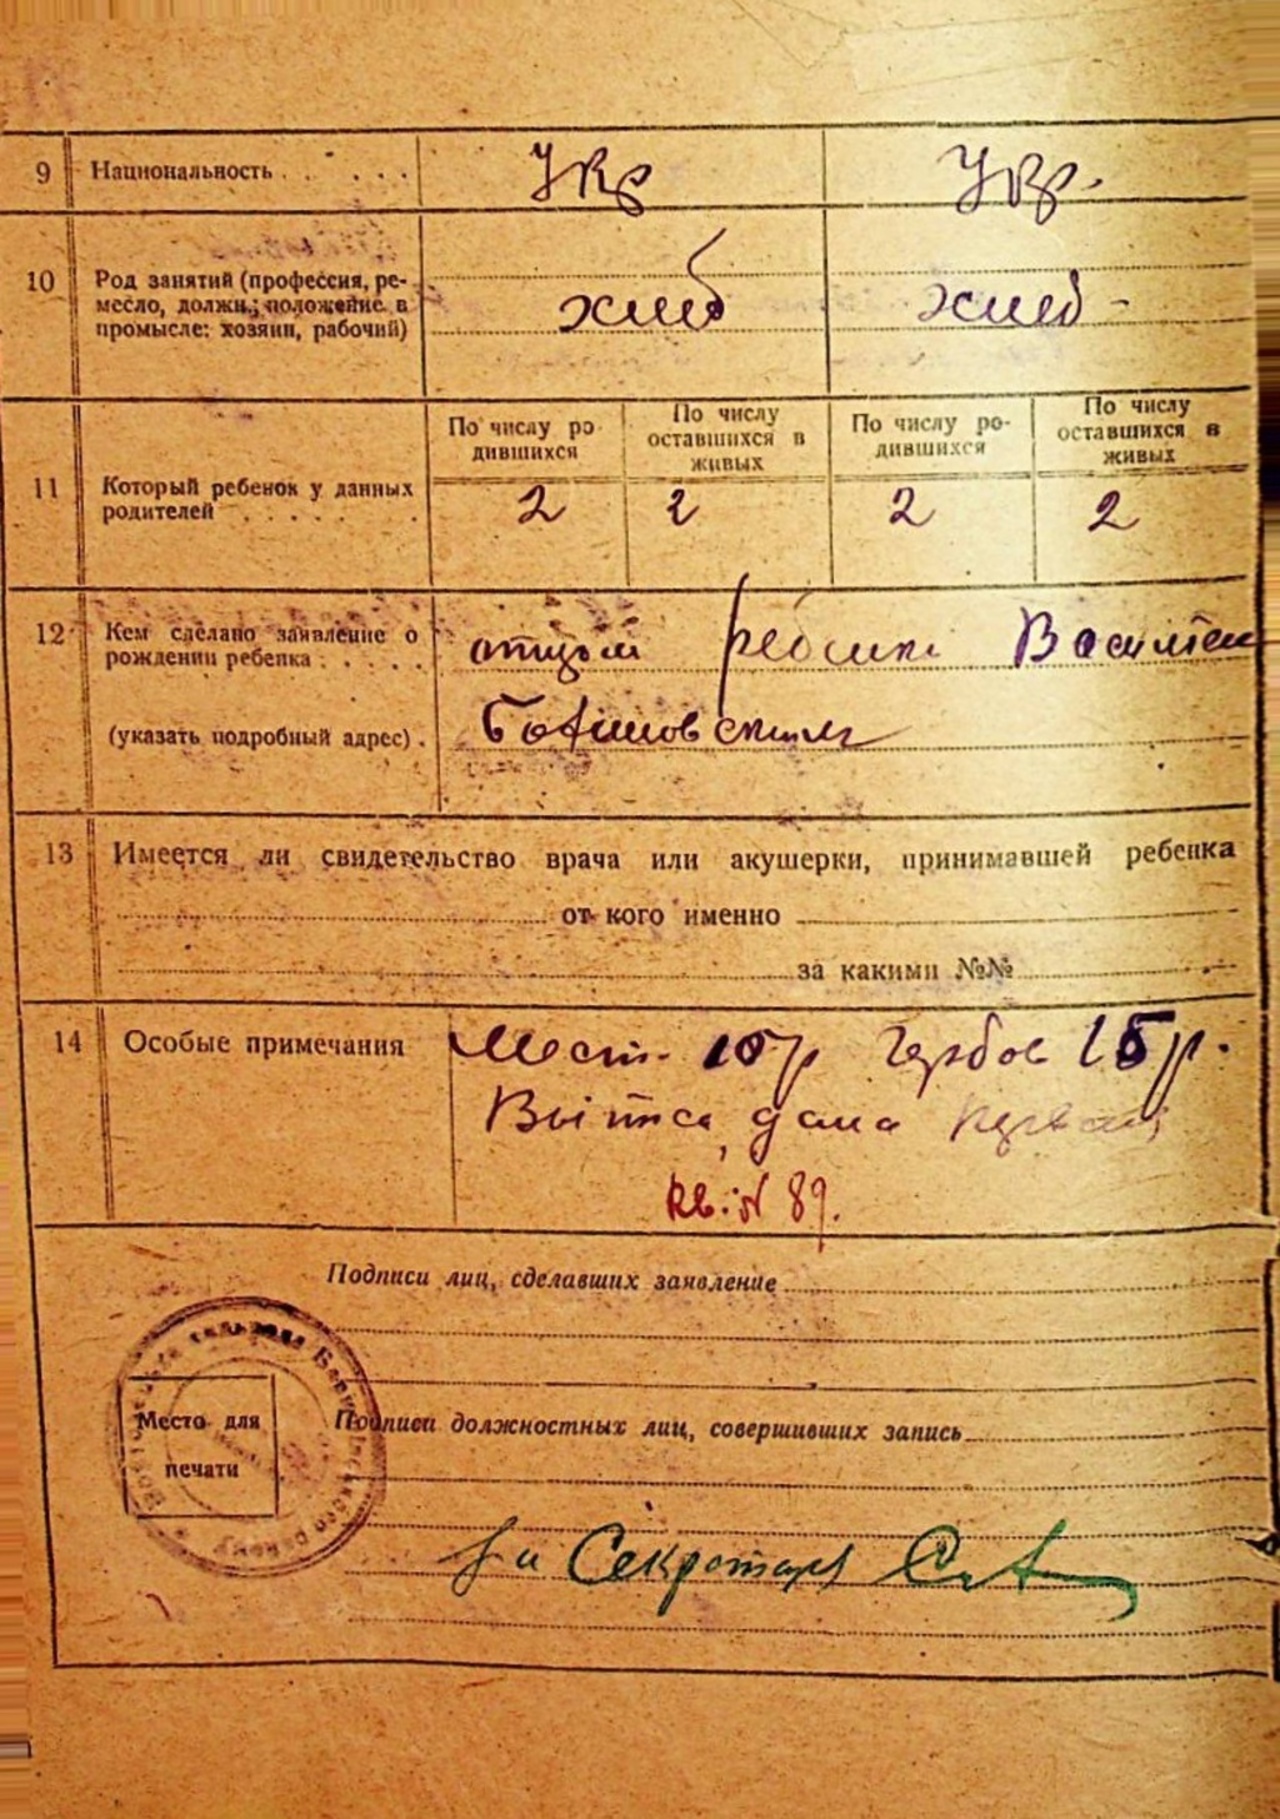 9 Национальность Укр Укр.
10 Род занятий (профессия, ре-
месло, должн.; положение в
промысле: хозяин, рабочий)
хлеб хлеб -
По числу ро-
дившихся
По числу
оставшихся в
живых
По числу ро-
дившихся
По числу
оставшихся в
живых
11 Который ребенок у данных
родителей
2 2 2 2
12 Кем сделано заявление о
рождении ребенка:
отцом ребенка
(указать подробный адрес).
13 Имеется ли свидетельство врача или акушерки, принимавшей ребенка
от кого именно
за какими №№
14 Особые примечания
Мест. 10р Гербов 15р.
дана
Кв. № 89.
Подписи лиц, сделавших заявление
Место для
печати
Подписи должностных лиц, совершивших запись
За Секретаря